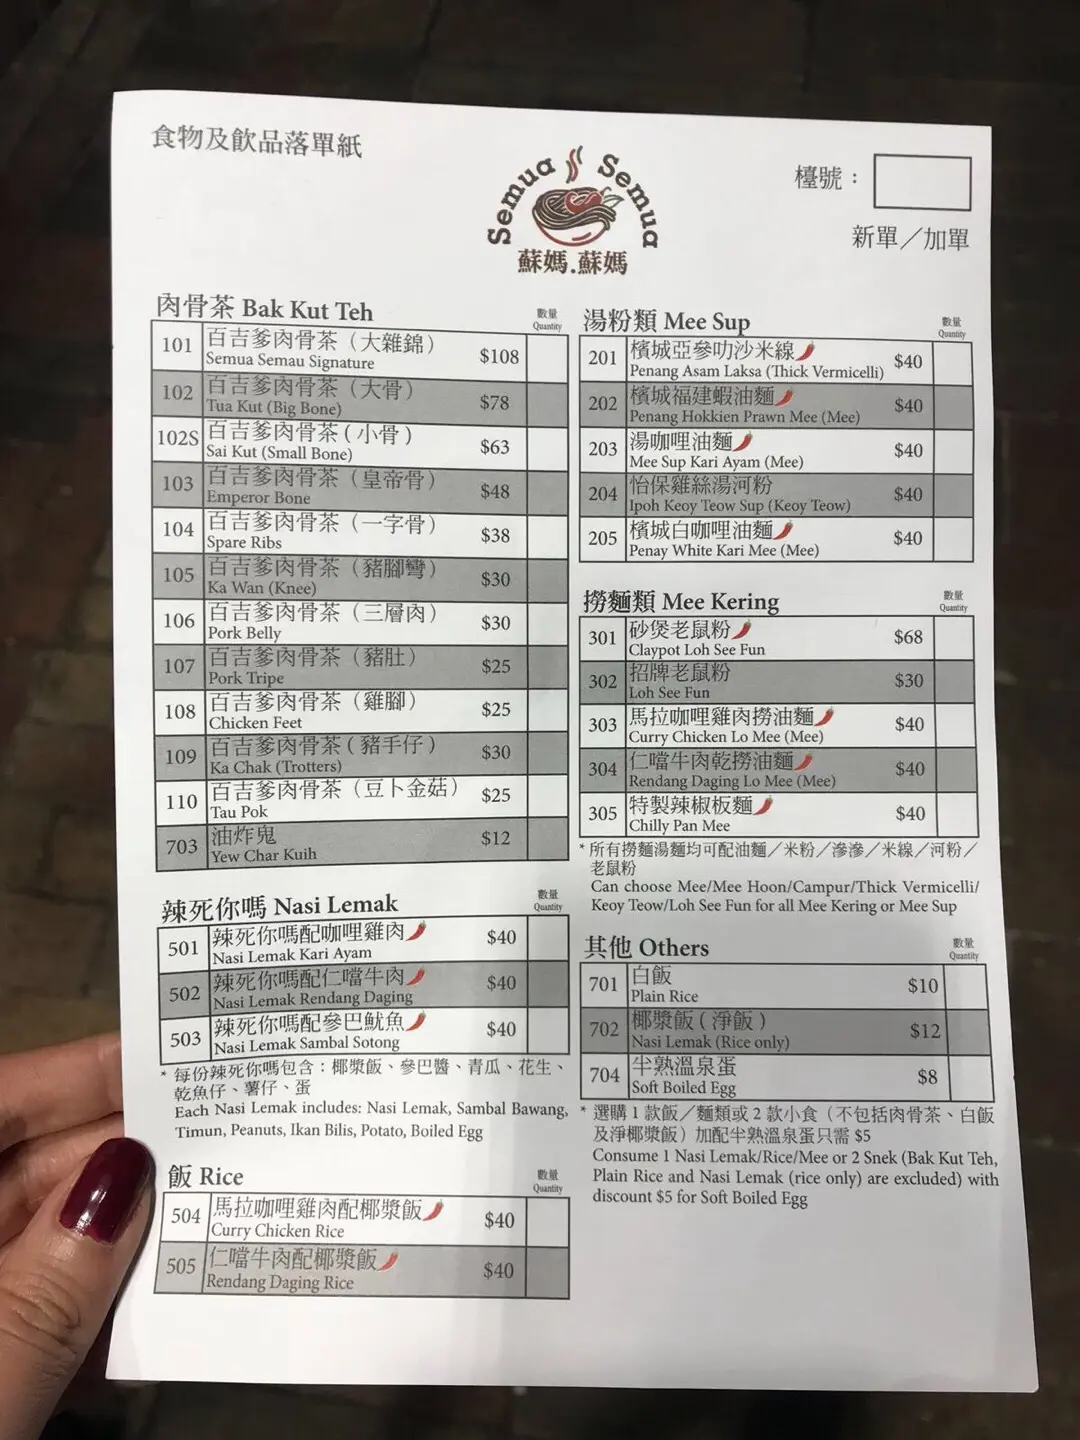 食物及飲品落單紙
Semua Semua
蘇媽.蘇媽
檯號：
新單／加單
肉骨茶 Bak Kut Teh
數量
Quantity
101 百吉爹肉骨茶（大雜錦） $108
Semua Semau Signature
102 百吉爹肉骨茶（大骨） $78
Tua Kut (Big Bone)
102S 百吉爹肉骨茶 ( 小骨 ) $63
Sai Kut (Small Bone)
103 百吉爹肉骨茶（皇帝骨） $48
Emperor Bone
104 百吉爹肉骨茶（一字骨） $38
Spare Ribs
105 百吉爹肉骨茶（豬腳彎） $30
Ka Wan (Knee)
106 百吉爹肉骨茶（三層肉） $30
Pork Belly
107 百吉爹肉骨茶（豬肚） $25
Pork Tripe
108 百吉爹肉骨茶（雞腳） $25
Chicken Feet
109 百吉爹肉骨茶 ( 豬手仔 ) $30
Ka Chak (Trotters)
110 百吉爹肉骨茶（豆卜金菇） $25
Tau Pok
703 油炸鬼 $12
Yew Char Kuih
辣死你嗎 Nasi Lemak
數量
Quantity
501 辣死你嗎配咖哩雞肉 $40
Nasi Lemak Kari Ayam
502 辣死你嗎配仁噹牛肉 $40
Nasi Lemak Rendang Daging
503 辣死你嗎配參巴魷魚 $40
Nasi Lemak Sambal Sotong
* 每份辣死你嗎包含：椰漿飯、參巴醬、青瓜、花生、
乾魚仔、薯仔、蛋
Each Nasi Lemak includes: Nasi Lemak, Sambal Bawang,
Timun, Peanuts, Ikan Bilis, Potato, Boiled Egg
飯 Rice
數量
Quantity
504 馬拉咖哩雞肉配椰漿飯 $40
Curry Chicken Rice
505 仁噹牛肉配椰漿飯 $40
Rendang Daging Rice
湯粉類 Mee Sup
數量
Quantity
201 檳城亞參叻沙米線 $40
Penang Asam Laksa (Thick Vermicelli)
202 檳城福建蝦油麵 $40
Penang Hokkien Prawn Mee (Mee)
203 湯咖哩油麵 $40
Mee Sup Kari Ayam (Mee)
204 怡保雞絲湯河粉 $40
Ipoh Keoy Teow Sup (Keoy Teow)
205 檳城白咖哩油麵 $40
Penay White Kari Mee (Mee)
撈麵類 Mee Kering
數量
Quantity
301 砂煲老鼠粉 $68
Claypot Loh See Fun
302 招牌老鼠粉 $30
Loh See Fun
303 馬拉咖哩雞肉撈油麵 $40
Curry Chicken Lo Mee (Mee)
304 仁噹牛肉乾撈油麵 $40
Rendang Daging Lo Mee (Mee)
305 特製辣椒板麵 $40
Chilly Pan Mee
* 所有撈麵湯麵均可配油麵／米粉／滲滲／米線／河粉／
老鼠粉
Can choose Mee/Mee Hoon/Campur/Thick Vermicelli/
Keoy Teow/Loh See Fun for all Mee Kering or Mee Sup
其他 Others
數量
Quantity
701 白飯 $10
Plain Rice
702 椰漿飯 ( 淨飯 ) $12
Nasi Lemak (Rice only)
704 半熟溫泉蛋 $8
Soft Boiled Egg
* 選購 1 款飯／麵類或 2 款小食（不包括肉骨茶、白飯
及淨椰漿飯）加配半熟溫泉蛋只需 $5
Consume 1 Nasi Lemak/Rice/Mee or 2 Snek (Bak Kut Teh,
Plain Rice and Nasi Lemak (rice only) are excluded) with
discount $5 for Soft Boiled Egg